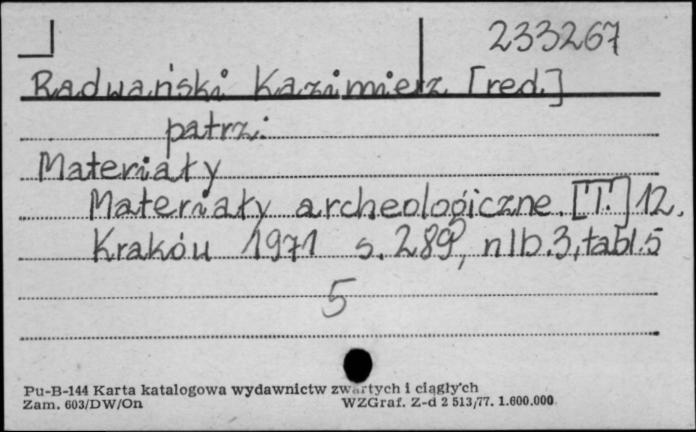 233267
Radwański Kazimierz [red.]
patrz:
Materiały
Materiały archeologiczne. [T.] 12.
Kraków 1971 s. 289, nlb. 3, tabl. 5
5
Pu-B-144 Karta katalogowa wydawnictw zwartych i ciągłych
Zam. 603/DW/On WZGraf. Z-d 2 513/77. 1.600.000